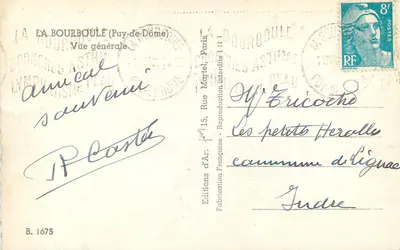 LA BOURBOULE (Puy-de-Dôme)
Vue générale
LA BOURBOULE
ASTHME
8F
RF
amical
souvenir
R Casté
Editions d'Art 15, Rue Martel, Paris
Fabrication Française - Reproduction interdite
Mr Tricoche
Les petits Herolles
commune de Lignac
Indre
B. 1675